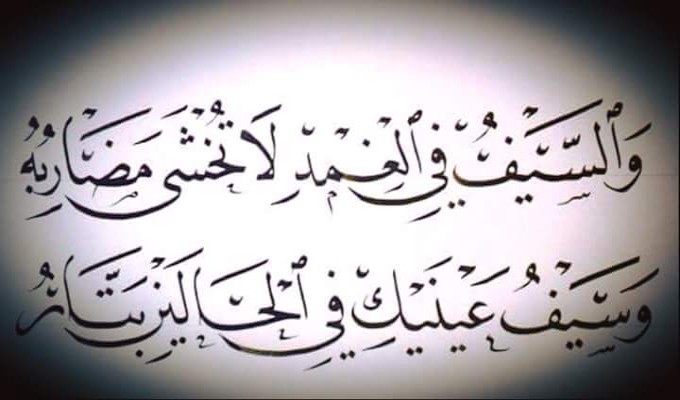 وَٱلسَّيْفُ فِي ٱلْغِمْدِ لَا تُخْشَى مَضَارِبُهُ
وَسَيْفُ عَيْنَيْكِ فِي ٱلْحَالَيْنِ بَتَّارُ